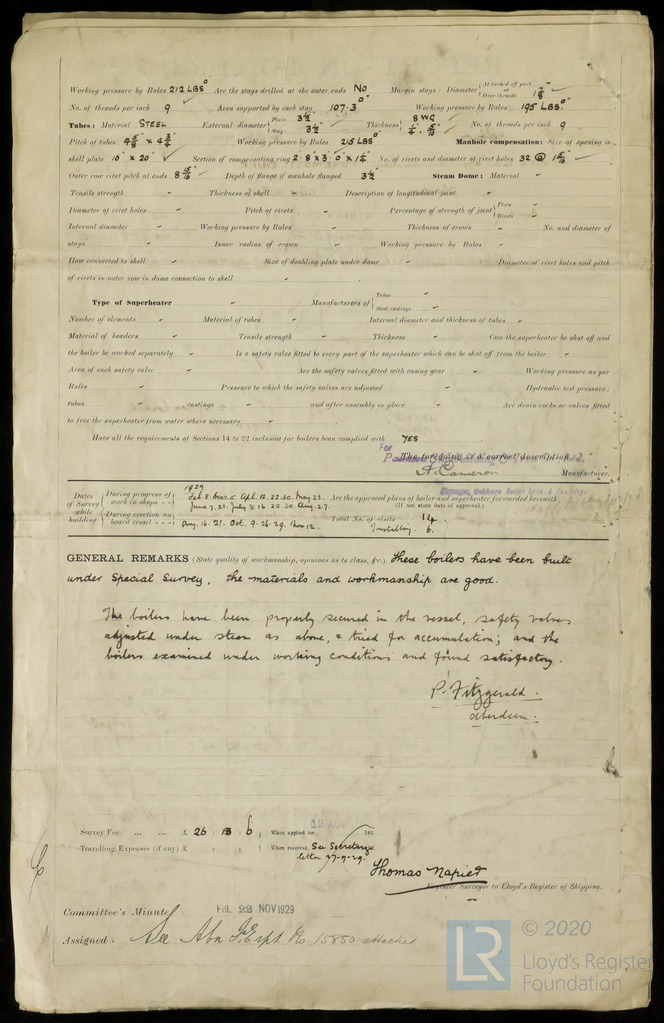 Working pressure by Rules 212 LBS" Are the stays drilled at the outer ends No Margin stays: Diameter { At turned off part, or Over threads 1 7/8"
No. of threads per inch 9 Area supported by each stay 107.3" Working pressure by Rules 195 LBS."
Tubes: Material STEEL External diameter { Plain 3½" Stay 3½" Thickness { 8 WG ¼" 5/16" No. of threads per inch 9
Pitch of tubes 4 5/8" x 4¾" Working pressure by Rules 215 LBS Manhole compensation: Size of opening in
shell plate 16" x 20" Section of compensating ring No. of rivets and diameter of rivet holes 32 @ 1 5/16"
Outer row rivet pitch at ends 8 15/16" Depth of flange if manhole flanged 3½" Steam Dome: Material -
Tensile strength " Thickness of shell " Description of longitudinal joint "
Diameter of rivet holes " Pitch of rivets " Percentage of strength of joint { Plate " Rivets "
Internal diameter " Working pressure by Rules " Thickness of crown " No. and diameter of
stays " Inner radius of crown " Working pressure by Rules "
How connected to shell " Size of doubling plate under dome " Diameter of rivet holes and pitch
of rivets in outer row in dome connection to shell "
Type of Superheater " Manufacturers of { Tubes " Steel castings "
Number of elements " Material of tubes " Internal diameter and thickness of tubes "
Material of headers " Tensile strength " Thickness " Can the superheater be shut off and
the boiler be worked separately " Is a safety valve fitted to every part of the superheater which can be shut off from the boiler "
Area of each safety valve " Are the safety valves fitted with easing gear " Working pressure as per
Rules " Pressure to which the safety valves are adjusted " Hydraulic test pressure:
tubes " castings " and after assembly in place " Are drain cocks or valves fitted
to free the superheater from water where necessary "
Have all the requirements of Sections 14 to 22 inclusive for boilers been complied with YES
For
The foregoing is a correct description,
A. Cameron Manufacturer.
Dates of Survey while building { During progress of work in shops - - { 1929 Feb 8. Mar. 5. Apl. 12. 22. 30. May 23. Are the approved plans of boiler and superheater forwarded herewith
June 7. 21. July 5. 16. 25. 30. Aug 27. (If not state date of approval.)
During erection on board vessel - - - } Aug. 16. 21. Oct. 9. 26. 29. Nov 12. Total No. of visits 14
Installing 6.
GENERAL REMARKS (State quality of workmanship, opinions as to class, &c.) These boilers have been built
under Special Survey, the materials and workmanship are good.
The boilers have been properly secured in the vessel, safety valves
adjusted under steam as above, & tried for accumulation; and the
boilers examined under working conditions and found satisfactory.
P. Fitzgerald.
Aberdeen.
12 AUG
Survey Fee ... ... £ 26 : 13 : 6 { When applied for, 192
Travelling Expenses (if any) £ : : { When received, See Secretary's
letter 27-9-29.
Thomas Napier
Engineer Surveyor to Lloyd's Register of Shipping.
Committee's Minute FRI. 22 NOV 1929
Assigned See Abn F.E. Rpt. No 15850 attached
LR
© 2020
Lloyd's Register
Foundation